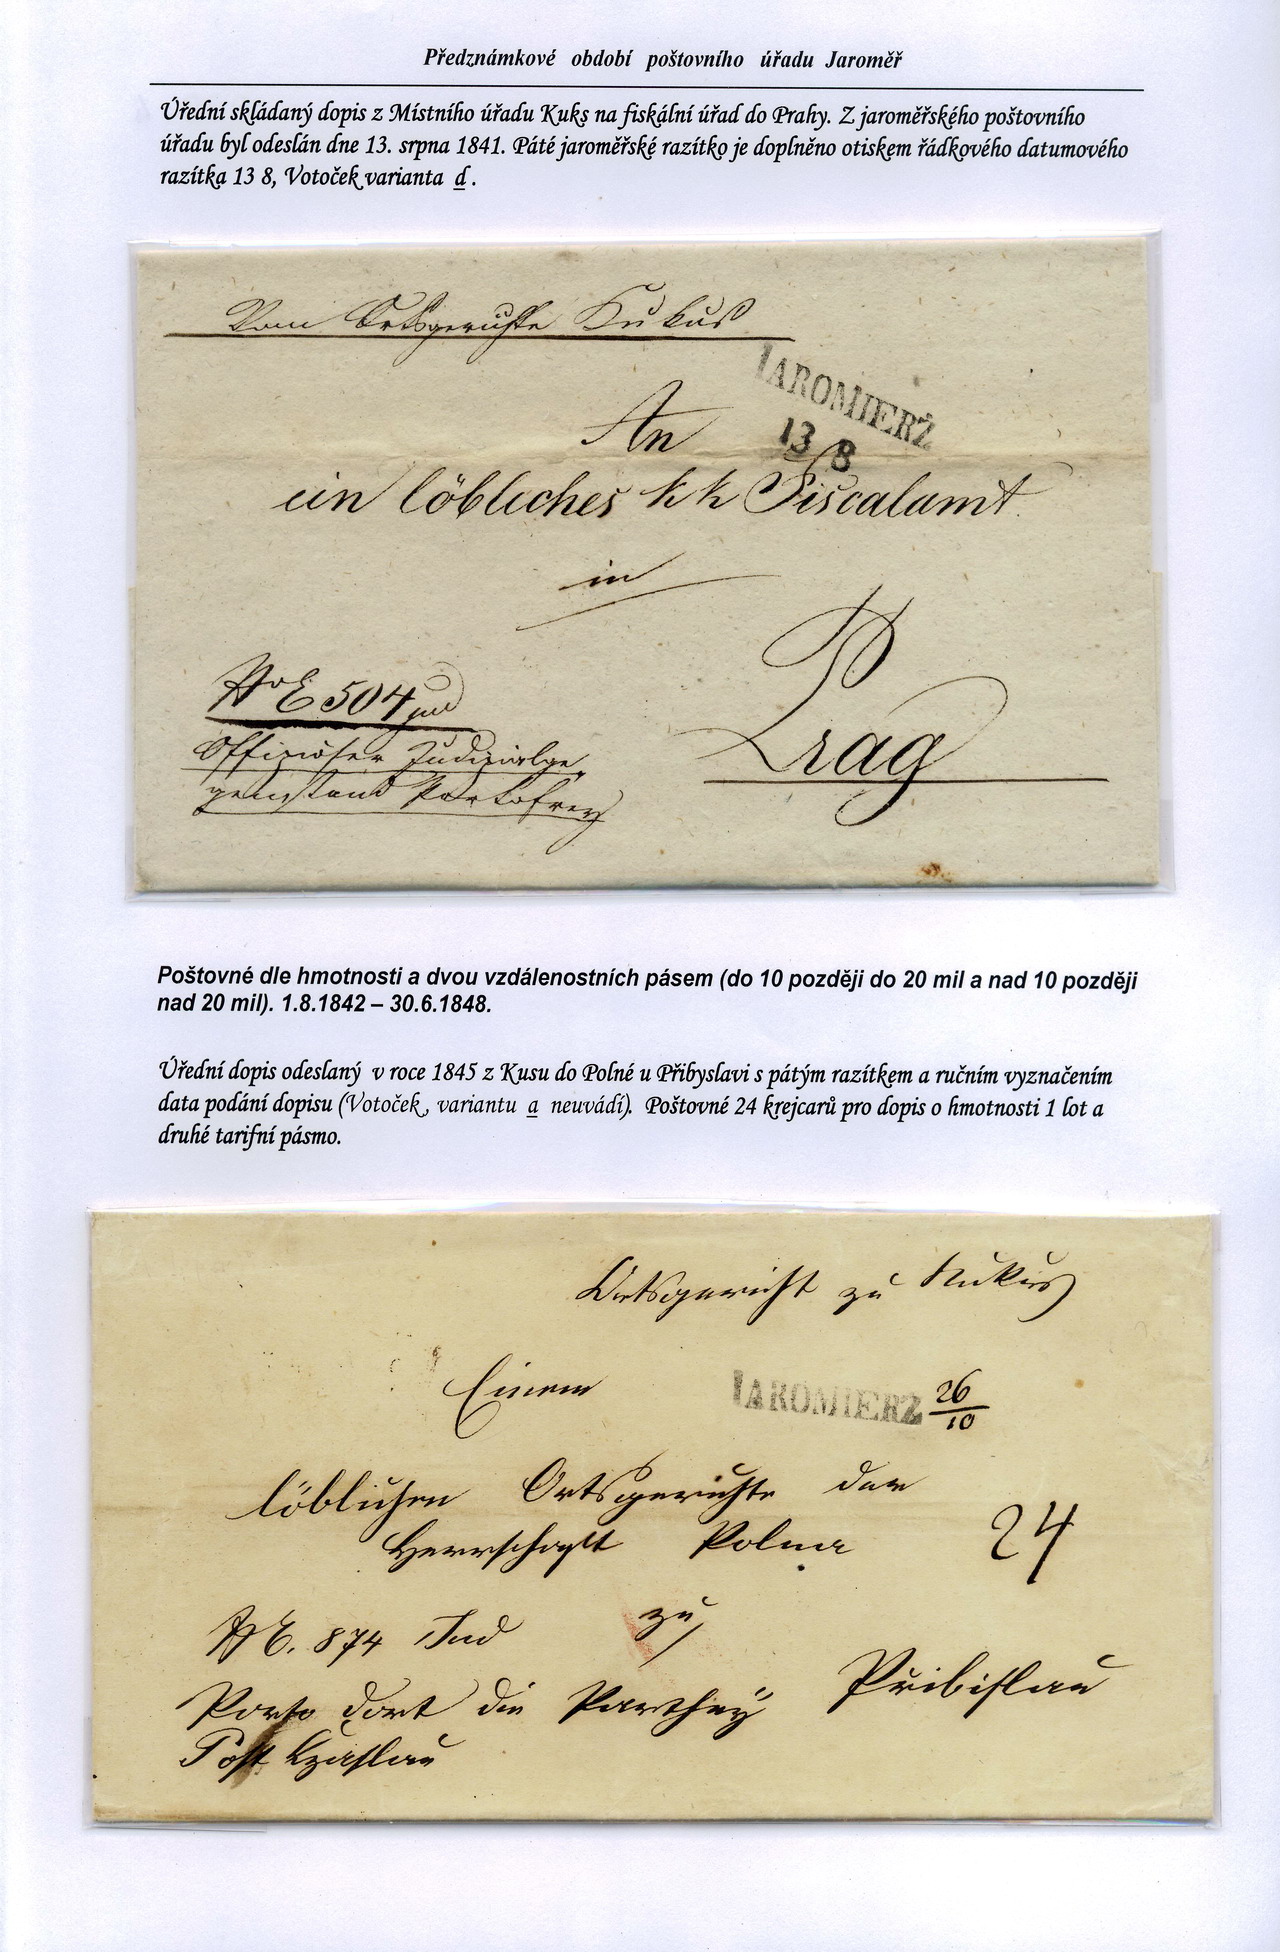 Předznámkové období poštovního úřadu Jaroměř
Úřední skládaný dopis z Místního úřadu Kuks na fiskální úřad do Prahy. Z jaroměřského poštovního
úřadu byl odeslán dne 13. srpna 1841. Páté jaroměřské razítko je doplněno otiskem řádkového datumového
razítka 13 8, Votoček varianta d .
Vom Ortsgerichte Kukus
IAROMIERŽ
13 8
An
ein löbliches k k Fiscalamt
in
Prag
NoE 504 jud
Offizioser Judizialge
genstand Portofrey
Poštovné dle hmotnosti a dvou vzdálenostních pásem (do 10 později do 20 mil a nad 10 později
nad 20 mil). 1.8.1842 – 30.6.1848.
Úřední dopis odeslaný v roce 1845 z Kusu do Polné u Přibyslavi s pátým razítkem a ručním vyznačením
data podání dopisu (Votoček, variantu a neuvádí). Poštovné 24 krejcarů pro dopis o hmotnosti 1 lot a
druhé tarifní pásmo.
Ortsgericht zu Kukus
Einem
IAROMIERŽ 26/10
löblichen Ortsgerichte der
Herrschaft Polna
24
NE. 874 Jud
zu
Přibislau
Porto dort die Parthey
Post Czaslau